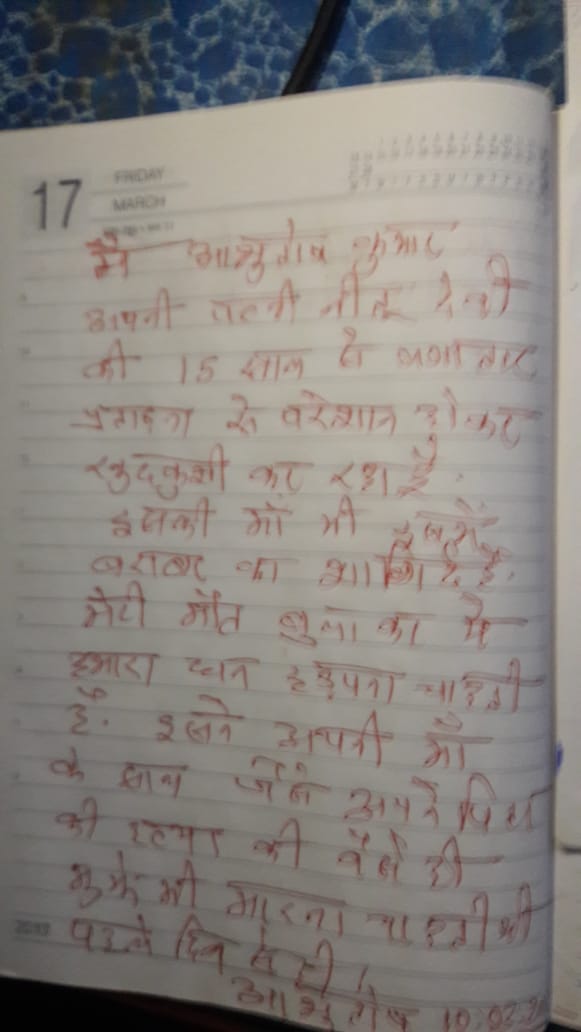 17
FRIDAY
MARCH
मैं आशुतोष कुमार
अपनी पत्नी नीतू देवी
की 15 साल से लगातार
प्रताड़ना से परेशान होकर
खुदकुशी कर रहा हैं.
इसकी माँ भी इसमें
बराबर का भागीदार है.
मेरी मौत बुला कर ये
हमारा धन हड़पना चाहती
हैं. इसने अपनी माँ
के साथ जैसे अपने पिता
की हत्या की वैसे ही
मुझे भी मारना चाहती थी
पहले दिन से ही।
आशुतोष 10.02.